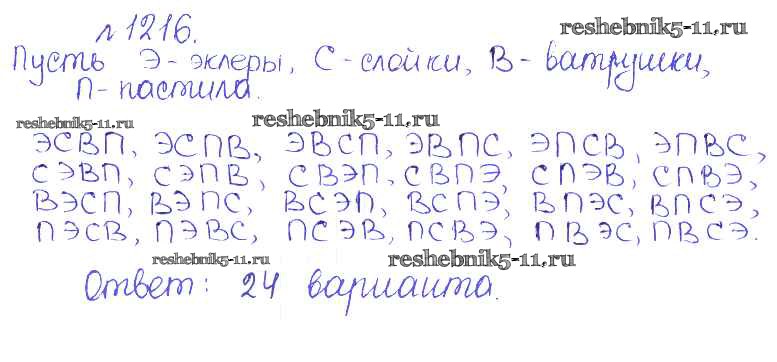 № 1216.
reshebnik5-11.ru
Пусть Э - эклеры, С - слойки, В - ватрушки,
П - пастила.
reshebnik5-11.ru reshebnik5-11.ru
ЭСВП, ЭСПВ, ЭВСП, ЭВПС, ЭПСВ, ЭПВС,
СЭВП, СЭПВ, СВЭП, СВПЭ, СПЭВ, СПВЭ,
ВЭСП, ВЭПС, ВСЭП, ВСПЭ, ВПЭС, ВПСЭ,
ПЭСВ, ПЭВС, ПСЭВ, ПСВЭ, ПВЭС, ПВСЭ.
reshebnik5-11.ru reshebnik5-11.ru
Ответ: 24 варианта.